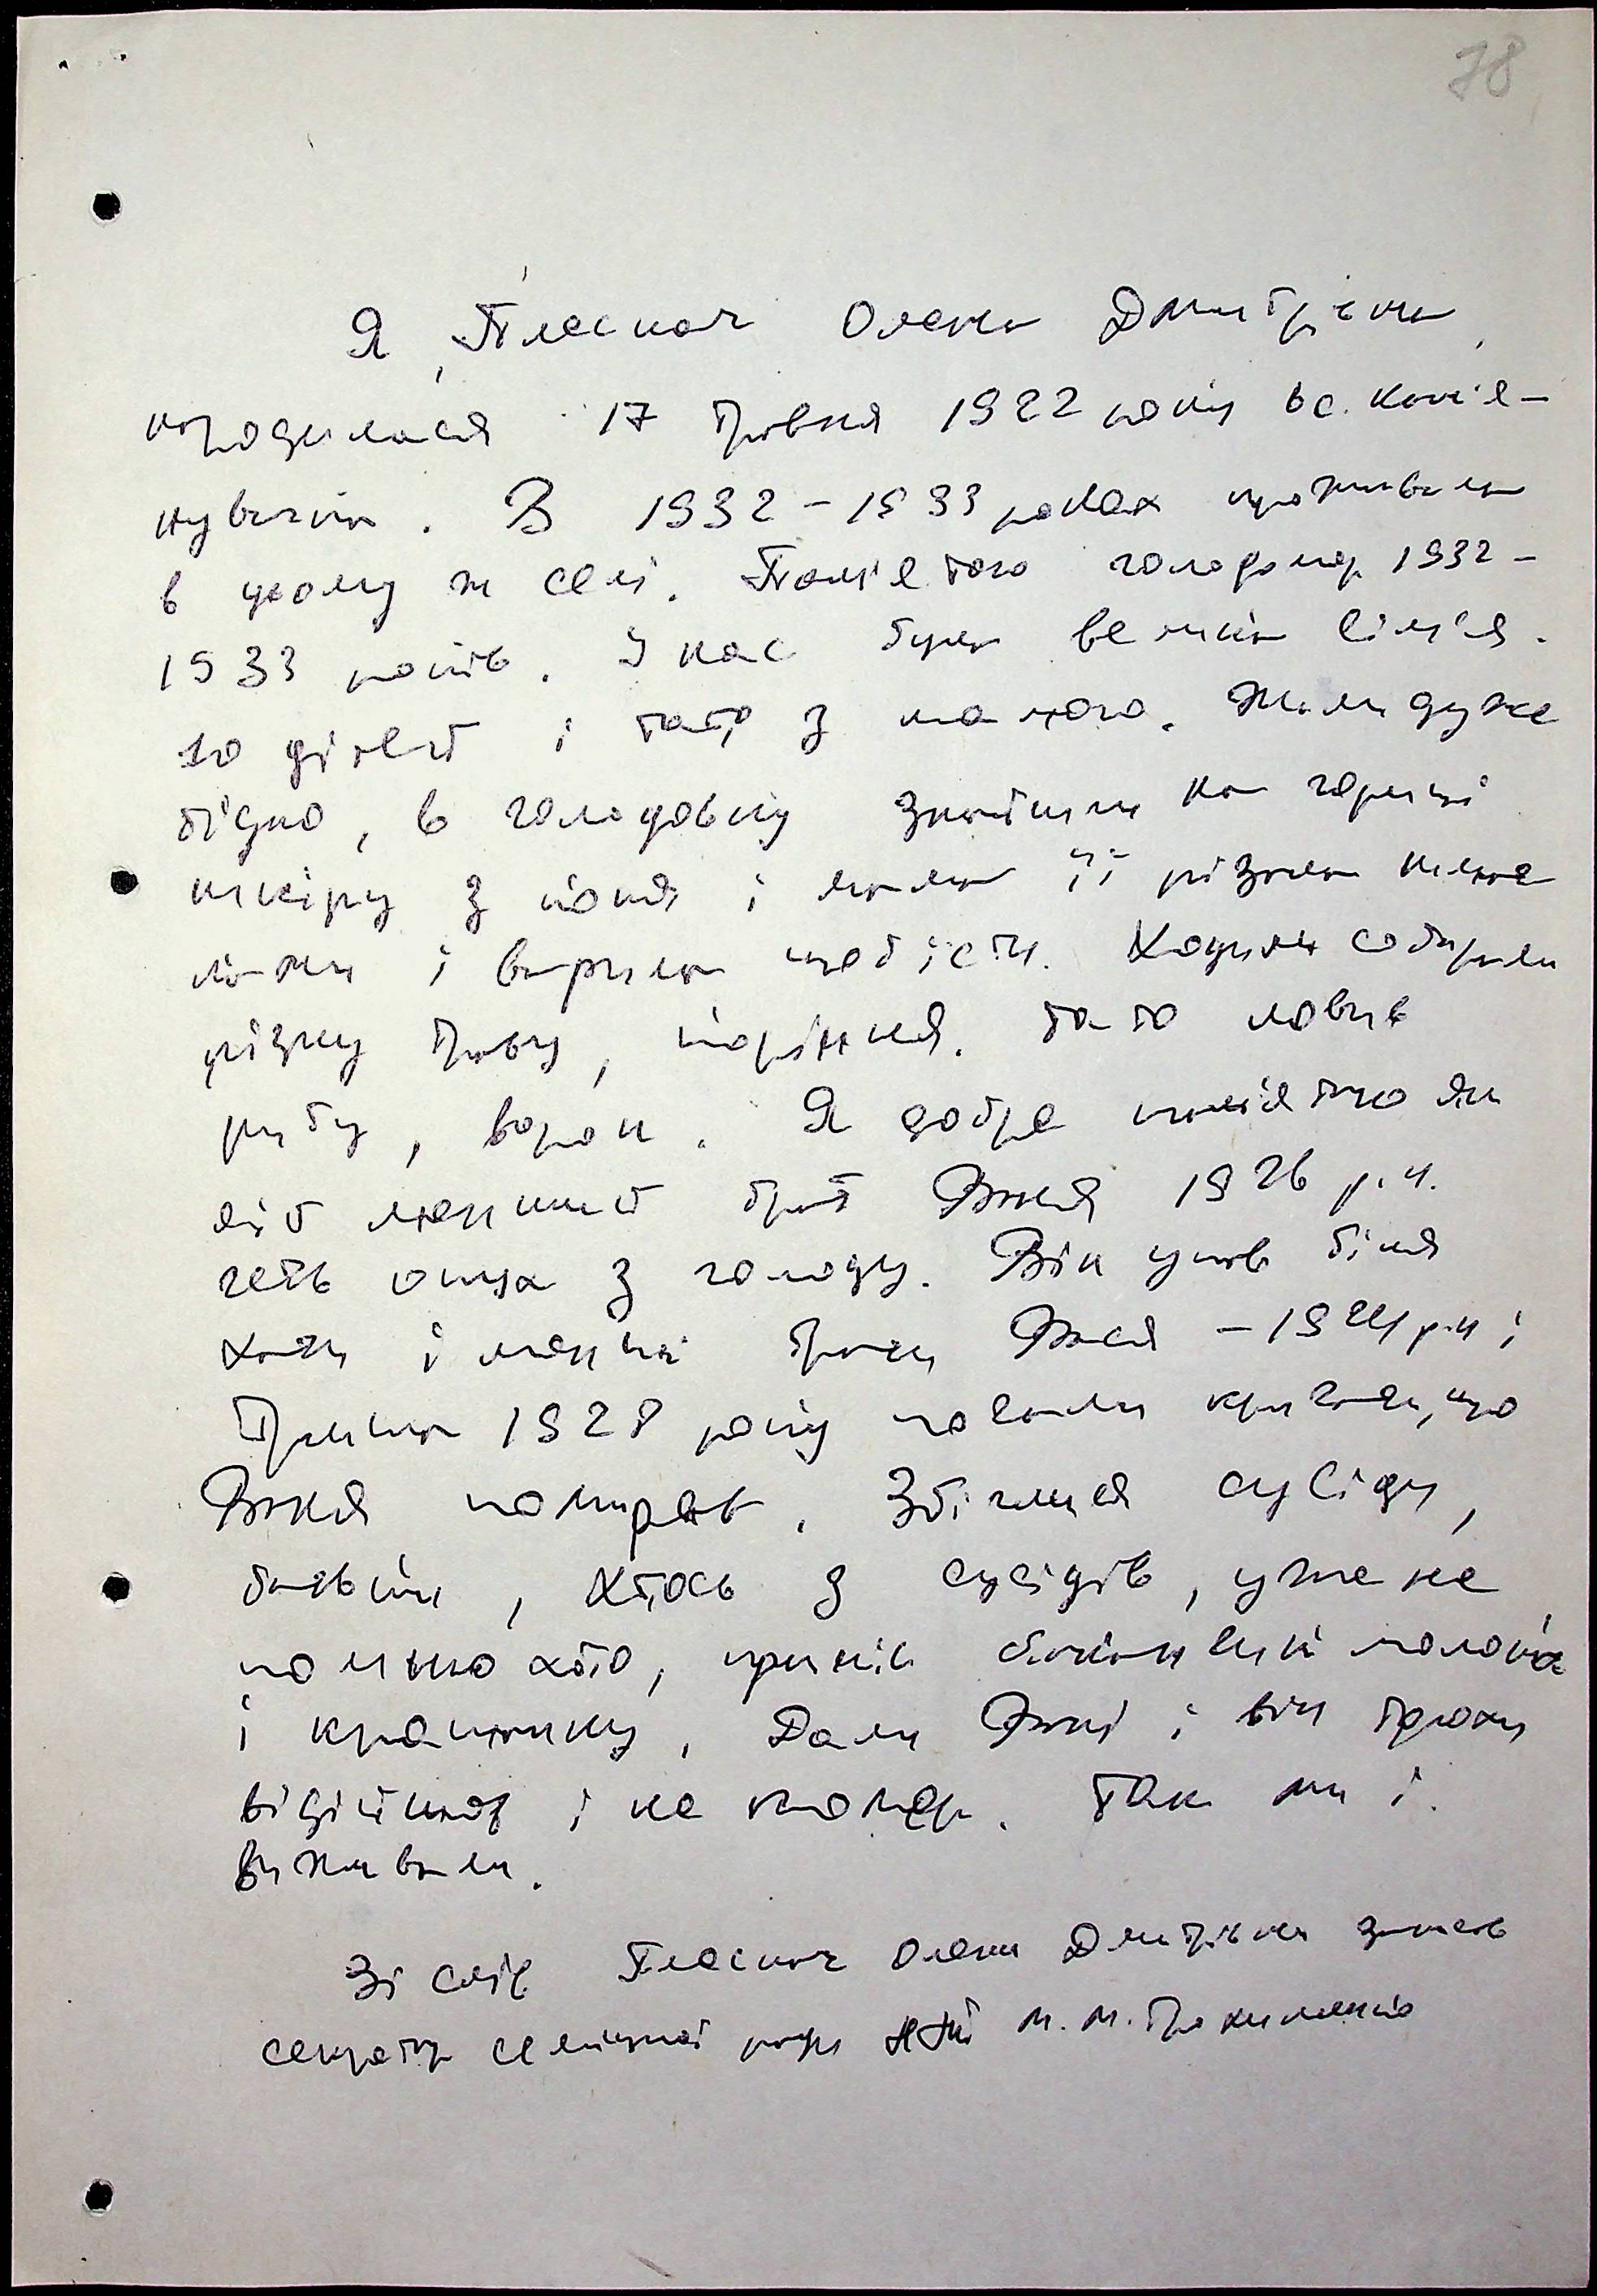 78
Я, Плескач Олена Дмитрівна,
народилася 17 травня 1922 року в с. Кам'я-
нуватка. В 1932-1933 роках проживала
в цьому ж селі. Пам'ятаю голодомор 1932-
1933 років. У нас була велика сім'я.
10 дітей і тато з мамою. Жили дуже
бідно, в голодовку знайшли на горищі
шкіру з коня і мама її різала
ножем і варила щоб їсти. Ходили собирали
різну траву, коріння. Тато ловив
рибу, ворон. Я добре пам'ятаю як
мій менший брат Ваня 1926 р.н.
геть опух з голоду. Він упав біля
хати і менші брати Вася - 1924 р.н і
Гриша 1928 року почали кричати, що
Ваня помирає. Збіглися сусіди,
батьки, хтось з сусідів, уже не
помню хто, приніс молока
і крапивку, Дали Вані і він трохи
відійшов і не помер. Так ми і
виживали.
Зі слів Плескач Олени Дмитрівни записав
секретар сільської ради М. М.